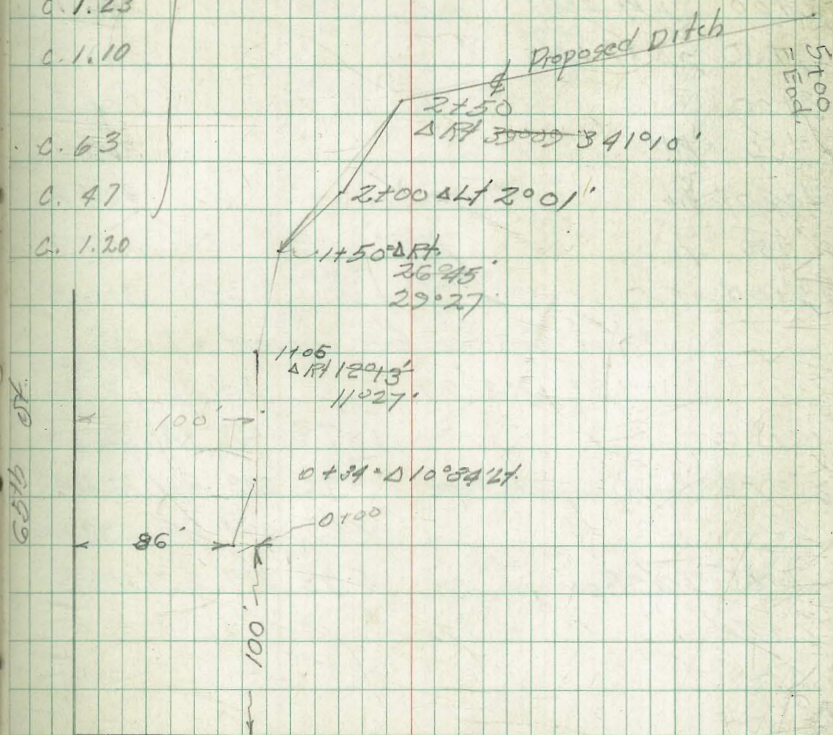 C. 1.23
C. 1.10
C. .63
C. .47
C. 1.20
℄ Proposed Ditch
5+00
= End.
2+50
Δ Rt 39°09' 3 41°10'
2+00 Δ Lt 2°01'
1+50 = Δ Rt.
26°45'
29°27'
1+05
Δ Rt 12°13'
11°27'
100'
0+34 = Δ 10°34' Lt.
0+00
86'
65th St.
100'